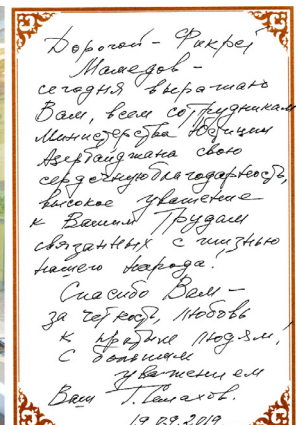 Дорогой - Фикрет
Мамедов -
сегодня выражаю
Вам, всем сотрудникам
Министерства Юстиции
Азербайджана свою
сердечную благодарность,
высокое уважение
к Вашим Трудам
связанных с жизнью
нашего народа!
Спасибо Вам -
за чёткость, любовь
к людям!
С большим
уважением
Ваш
19.09.2019